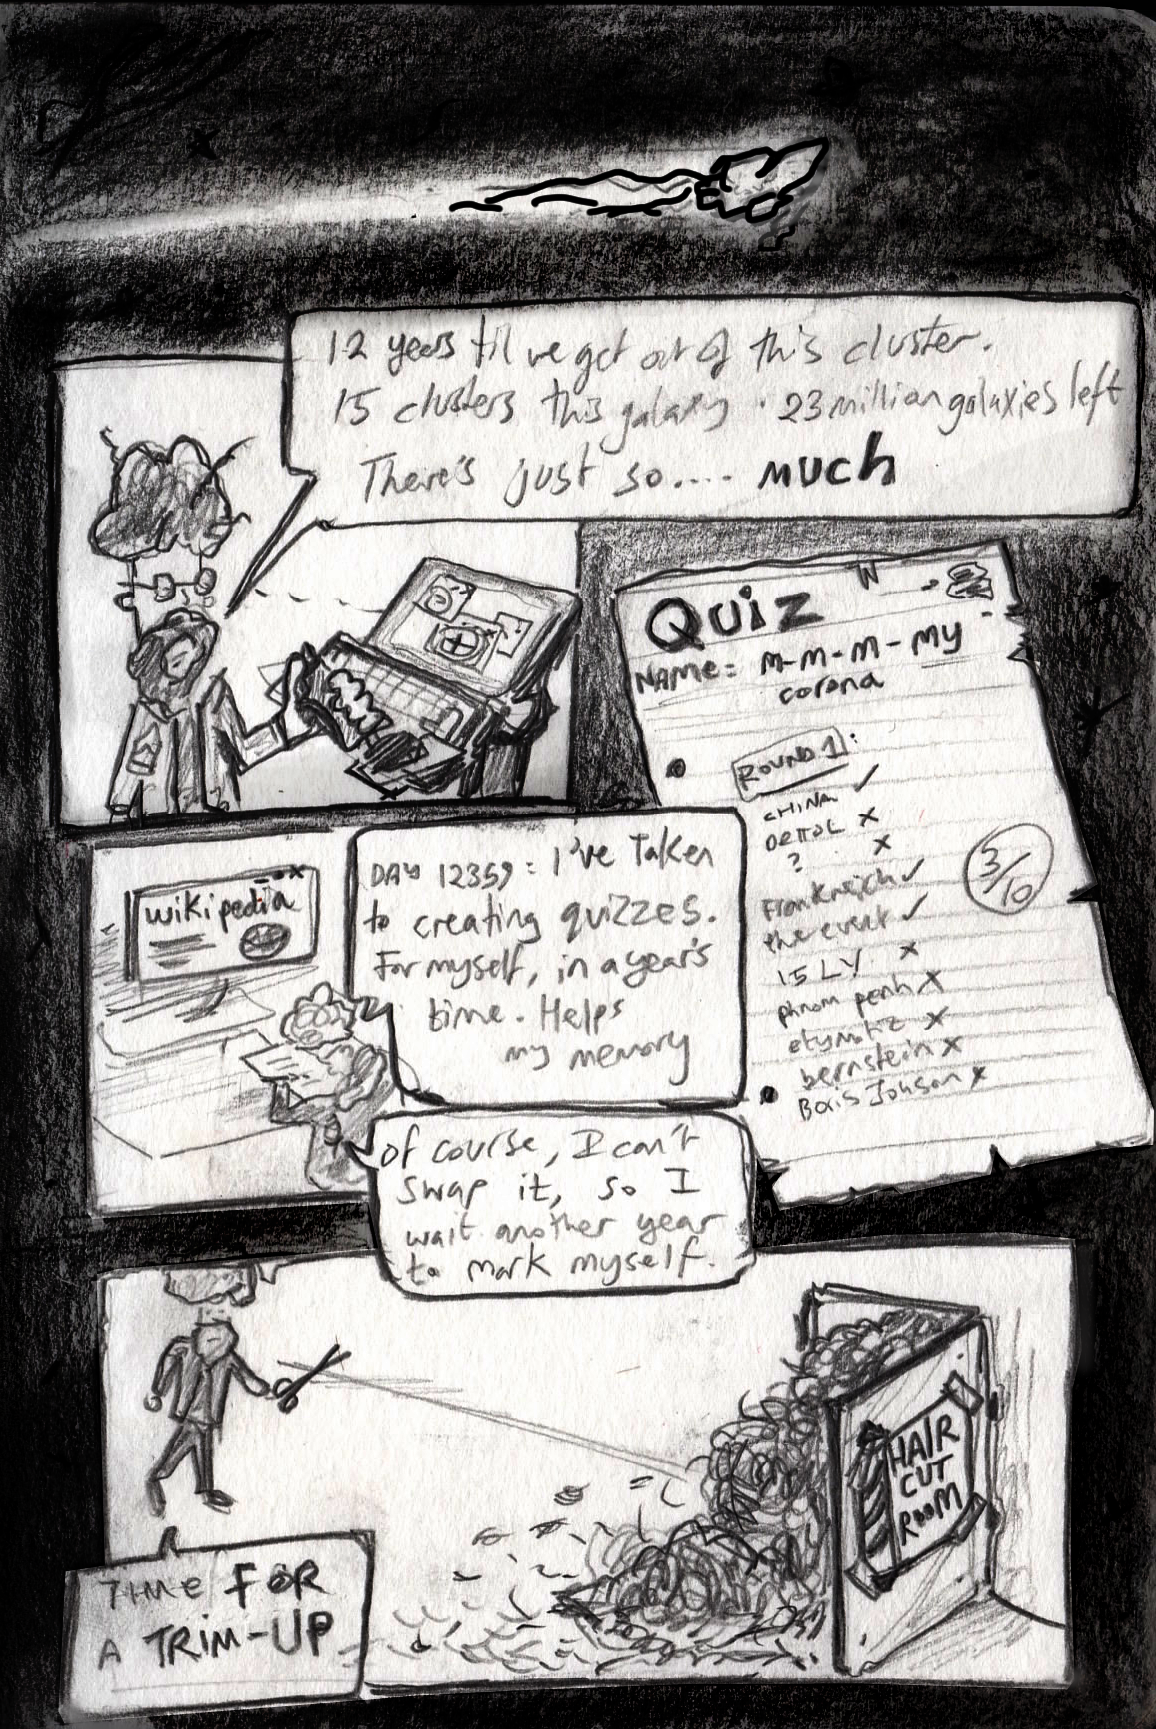 12 years til we get out of this cluster.
15 clusters this galaxy. 23 million galaxies left
There's just so.... much
QUIZ
NAME: m-m-m-my
corona
ROUND 1:
CHINA ✓
DETTOL X
? X
Frankreich ✓
the event ✓
15 LY. X
phnom penh X
X
bernstein X
Boris Johnson X
3/10
wikipedia
DAY 12359: I've taken
to creating quizzes.
For myself, in a year's
time. Helps
my memory
Of course, I can't
swap it, so I
wait another year
to mark myself.
HAIR
CUT
ROOM
TIME FOR
A TRIM-UP